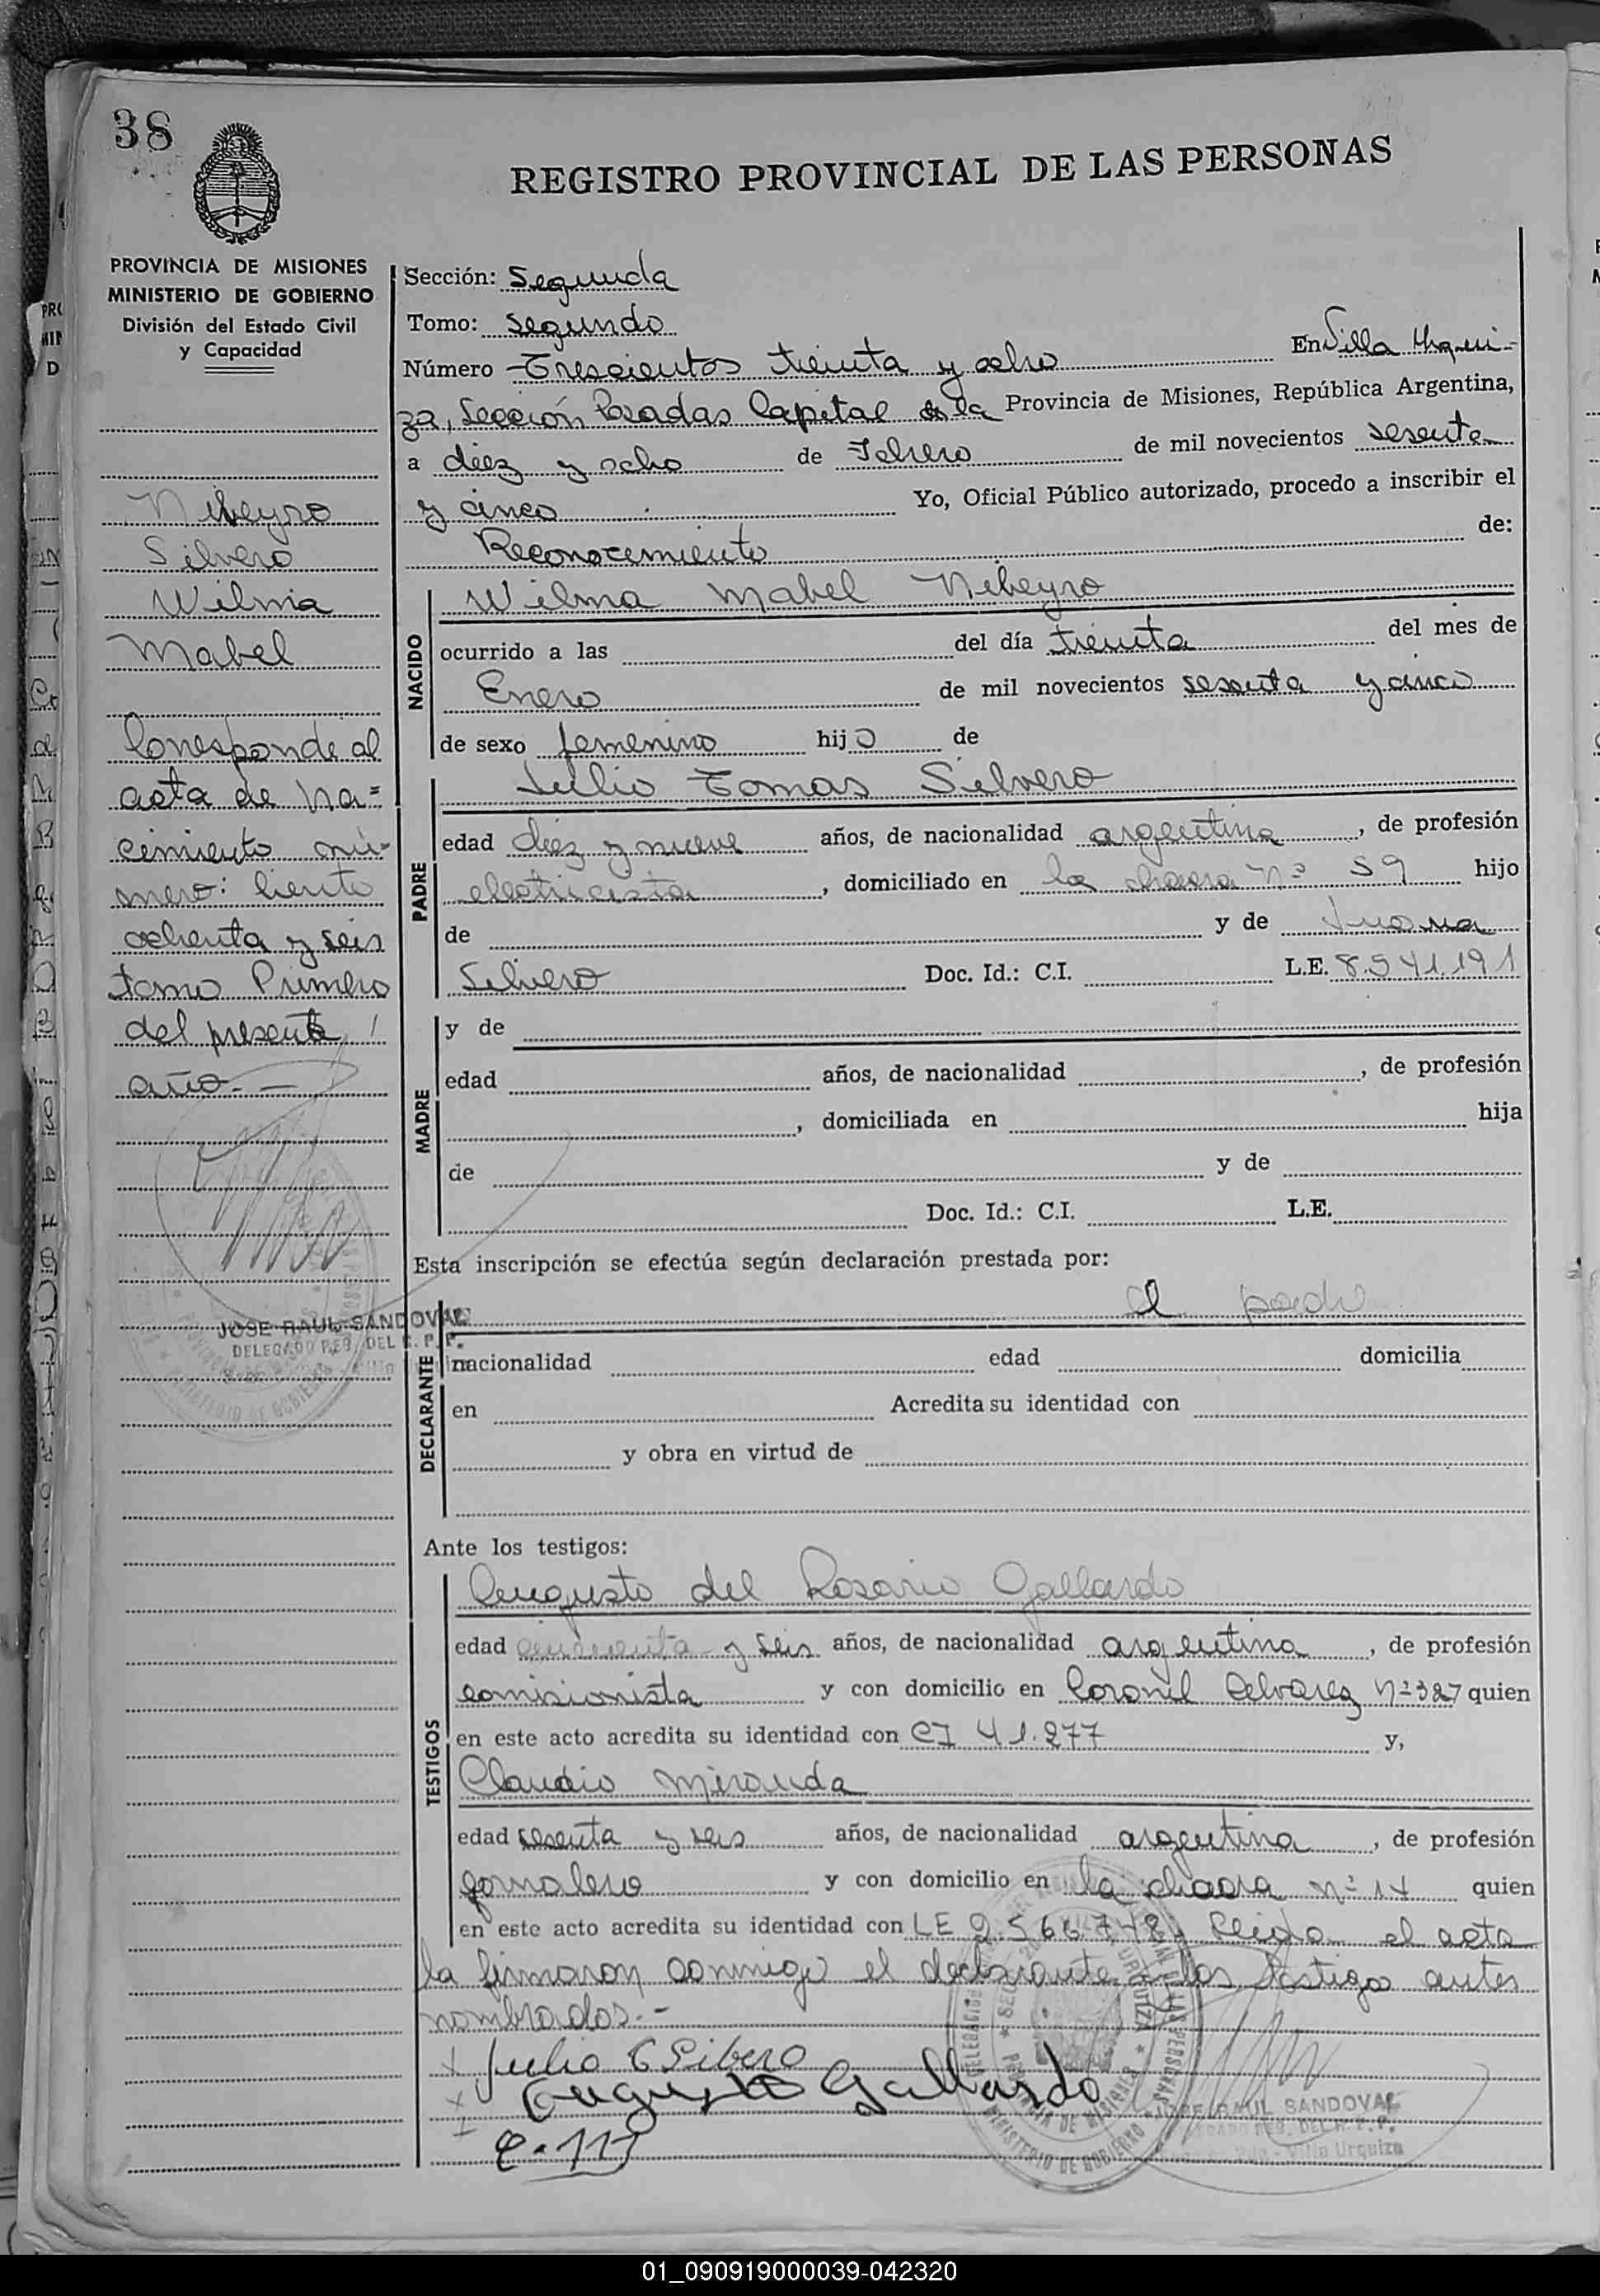 38
REGISTRO PROVINCIAL DE LAS PERSONAS
PROVINCIA DE MISIONES
MINISTERIO DE GOBIERNO
División del Estado Civil
y Capacidad
Nibeyro
Silvero
Wilma
Mabel
Corresponde al
acta de na=
cimiento nú-
mero: Ciento
ochenta y seis
tomo Primero
del presente
año.-
JOSE RAUL SANDOVAL
DELEGADO REG. DEL R. P. P.
Sección: Segunda
Tomo: Segundo
Número Trescientos treinta y ocho En Villa Urqui-
za, Sección Posadas Capital de la Provincia de Misiones, República Argentina,
a diez y ocho de Febrero de mil novecientos sesenta
y cinco Yo, Oficial Público autorizado, procedo a inscribir el
Reconocimiento de:
NACIDO
Wilma Mabel Nibeyro
ocurrido a las del día treinta del mes de
Enero de mil novecientos sesenta y cinco
de sexo femenino hijo de
PADRE
Julio Tomas Silvero
edad diez y nueve años, de nacionalidad argentina, de profesión
electricista, domiciliado en la chacra Nº 59 hijo
de y de Juana
Silvero Doc. Id.: C.I. L.E. 8.541.191
MADRE
y de
edad años, de nacionalidad , de profesión
, domiciliada en hija
de y de
Doc. Id.: C.I. L.E.
Esta inscripción se efectúa según declaración prestada por:
DECLARANTE
el padre
nacionalidad edad domicilia
en Acredita su identidad con
y obra en virtud de
Ante los testigos:
TESTIGOS
Augusto del Rosario Gallardo
edad cincuenta y seis años, de nacionalidad argentina, de profesión
comisionista y con domicilio en Coronel Alvarez Nº 327 quien
en este acto acredita su identidad con CI 41.277 y,
Claudio Miranda
edad sesenta y seis años, de nacionalidad argentina, de profesión
jornalero y con domicilio en la chacra nº 14 quien
en este acto acredita su identidad con LE 2.566.748, Leída el acta
la firmaron conmigo el declarante y los testigos antes
nombrados.-
Julio C Silbero
Augusto Gallardo
JOSE RAUL SANDOVAL
Villa Urquiza
01_090919000039-042320